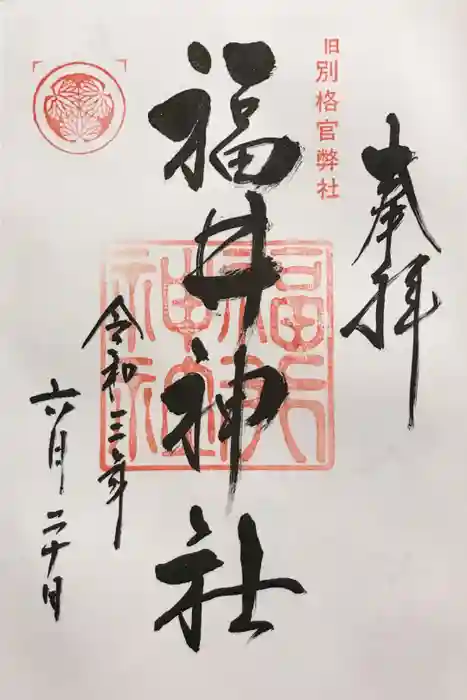 奉拝
旧別格官弊社
福井神社
福井神社
令和三年
六月二十日